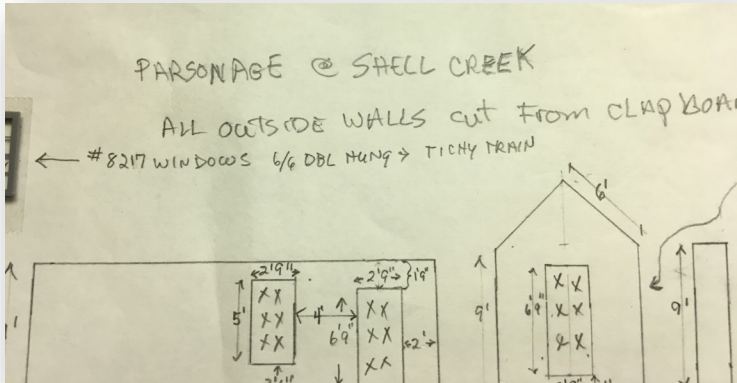 PARSONAGE @ SHELL CREEK
ALL OUTSIDE WALLS cut From CLAPBOA
← #8217 WINDOWS 6/6 DBL HUNG → TICHY TRAIN
6'
2'9"
2'9"
1'9"
5'
4'
6'9"
2'
9'
6'9"
9'
XX
XX
XX
XX
XX
XX
XX
XX
XX